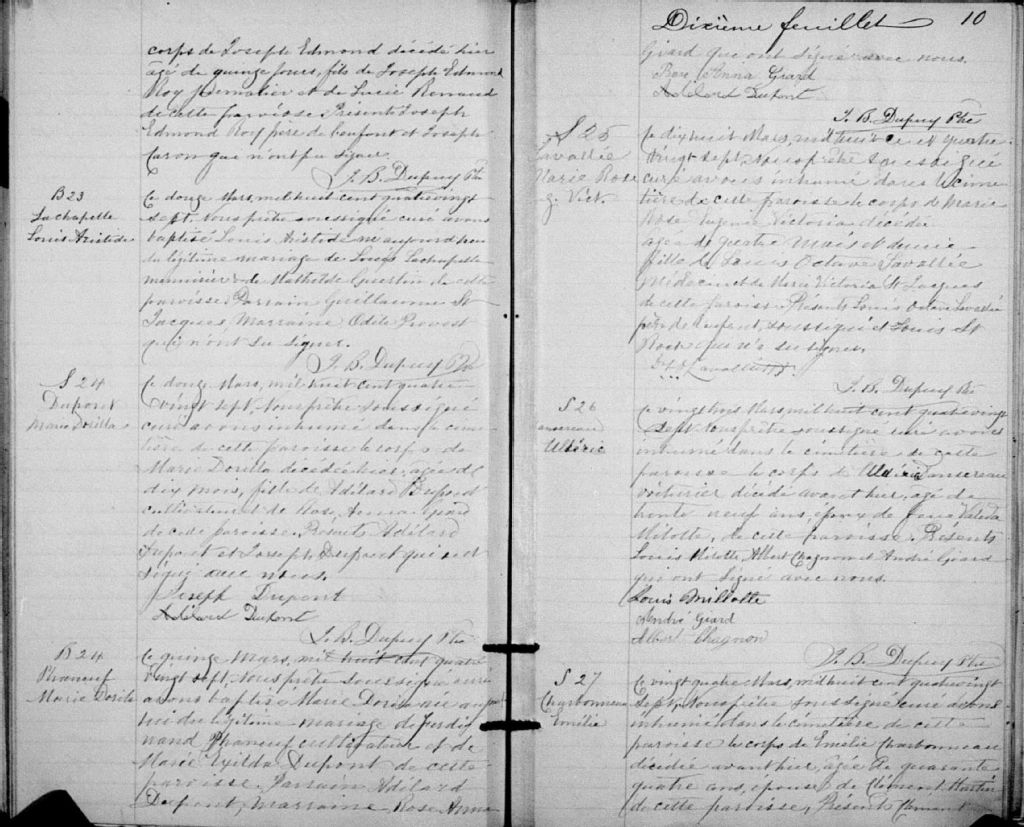 corps de Joseph Edmond décédé hier
âgé de quinze jours, fils de Joseph Edmond
Roy journalier et de Lucie Renaud
de cette paroisse. Présents Joseph
Edmond Roy père de l'enfant et Joseph
Caron qui n'ont pu signer.
J. B. Dupuy Ptre
B 23
Lachapelle
Louis Aristide
Le douze Mars, mil huit cent quatrevingt
sept, Nous prêtre soussigné curé avons
baptisé Louis Aristide né aujourd'hui
du légitime mariage de Louis Lachapelle
menuisier et de Mathilde Guertin de cette
paroisse. Parrain Guillaume St
Jacques, Marraine Odile Provost
qui n'ont su signer.
J. B. Dupuy Ptre
S 24
Dupont
Marie Dorilla
Le douze Mars, mil huit cent quatre
vingt sept, Nous prêtre soussigné
curé avons inhumé dans le cime
tière de cette paroisse le corps de
Marie Dorilla décédée hier, agée de
dix mois, fille de Adélard Dupont
cultivateur et de Rose Anna Giard
de cette paroisse. Présents Adélard
Dupont et Joseph Dupont qui ont
signé avec nous.
Joseph Dupont
Adélard Dupont
J. B. Dupuy Ptre
B 24
Phaneuf
Marie Dorila
Le quinze Mars, mil huit cent quatre
vingt sept, Nous prêtre soussigné curé
avons baptisé Marie Dorila née aujourd
hui du légitime mariage de Ferdi
nand Phaneuf cultivateur et de
Marie Exilda Dupont de cette
paroisse. Parrain Adélard
Dupont, Marraine Rose Anna
Dixième feuillet 10
Giard qui ont signé avec nous.
Rose Anna Giard
Adélard Dupont
J. B. Dupuy Ptre
S 25
Lavallée
Marie Rose
Vict.
Le dix huit Mars, mil huit cent quatre
vingt sept, Nous prêtre soussigné
curé avons inhumé dans le cime
tière de cette paroisse le corps de Marie
Rose Victoria décédée
agée de quatre mois et demie
fille de Louis Octave Lavallée
Médecin et de Marie Victoria St Jacques
de cette paroisse. Présents Louis Octave Lavallée
père de l'enfant, soussigné et Louis St
Roch qui n'a su signer.
Lavallée
J. B. Dupuy Ptre
S 26
Dansereau
Uldéric
Le vingt trois Mars, mil huit cent quatrevingt
sept, Nous prêtre soussigné curé avons
inhumé dans le cimetière de cette
paroisse le corps de Uldéric Dansereau
voiturier décédé avant hier, agé de
trente neuf ans, époux de feue Valeda
Milotte, de cette paroisse. Présents
Louis Milotte, Albert Chagnon et André Giard
qui ont signé avec nous.
Louis Millotte
André Giard
Albert Chagnon
J. B. Dupuy Ptre
S 27
Charbonneau
Emélie
Le vingt quatre Mars, mil huit cent quatrevingt
sept, Nous prêtre soussigné curé avons
inhumé dans le cimetière de cette
paroisse le corps de Emélie Charbonneau
décédée avant hier, agée de quarante
quatre ans, épouse de Clément Martin
de cette paroisse, Présents Clément